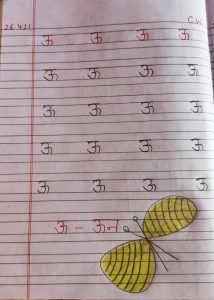 C.W
26.4.21 ऊ ऊ ऊ ऊ
ऊ ऊ ऊ ऊ
ऊ ऊ ऊ ऊ
ऊ ऊ ऊ ऊ
ऊ ऊ ऊ ऊ
ऊ - ऊन